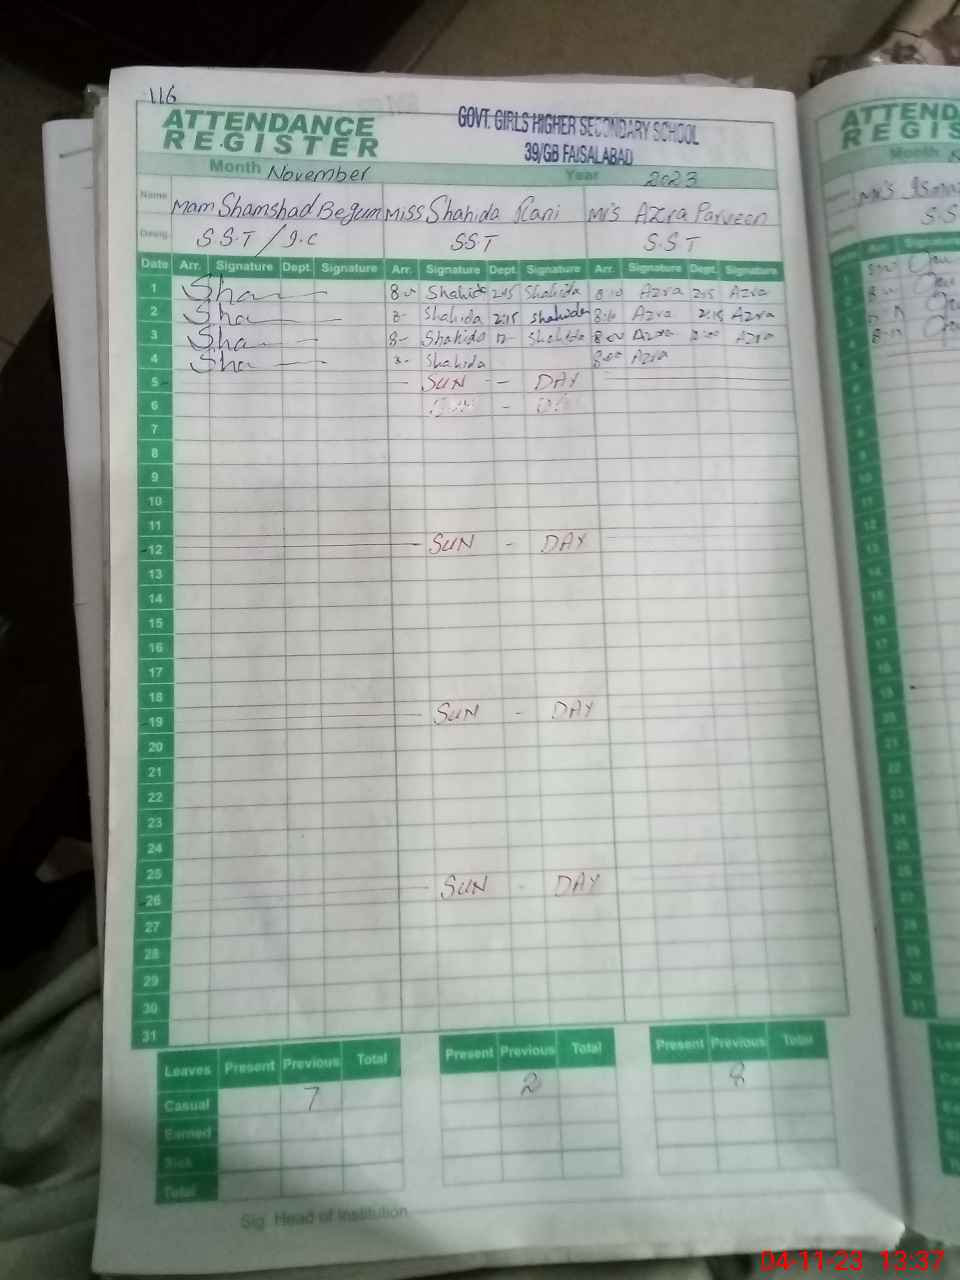 116
ATTENDANCE REGISTER
GOVT. GIRLS HIGHER SECONDARY SCHOOL
39/GB FAISALABAD
Month November Year 2023
Name Mam Shamshad Begum Miss Shahida Rani Mrs Azra Parveen
Desig. S.S.T / I.C SST S.S.T
Date Arr. Signature Dept. Signature Arr. Signature Dept. Signature Arr. Signature Dept. Signature
1 Sha 8-00 Shahida 2:15 Shahida 8:10 Azra 2:15 Azra
2 Sha 8- Shahida 2:15 Shahida 8:10 Azra 2:15 Azra
3 Sha 8- Shahida 12- Shahida 8:00 Azra 12:00 Azra
4 Sha 8- Shahida 8:00 Azra
5 SUN - DAY
6
7
8
9
10
11
12 SUN - DAY
13
14
15
16
17
18
19 SUN - DAY
20
21
22
23
24
25
26 SUN - DAY
27
28
29
30
31
Leaves Present Previous Total Present Previous Total Present Previous Total
Casual 7 2 8
Earned
Sick
Total
Sig. Head of Institution
ATTEND
REGIS
Month N
Mrs
S.S
04-11-23 13:37